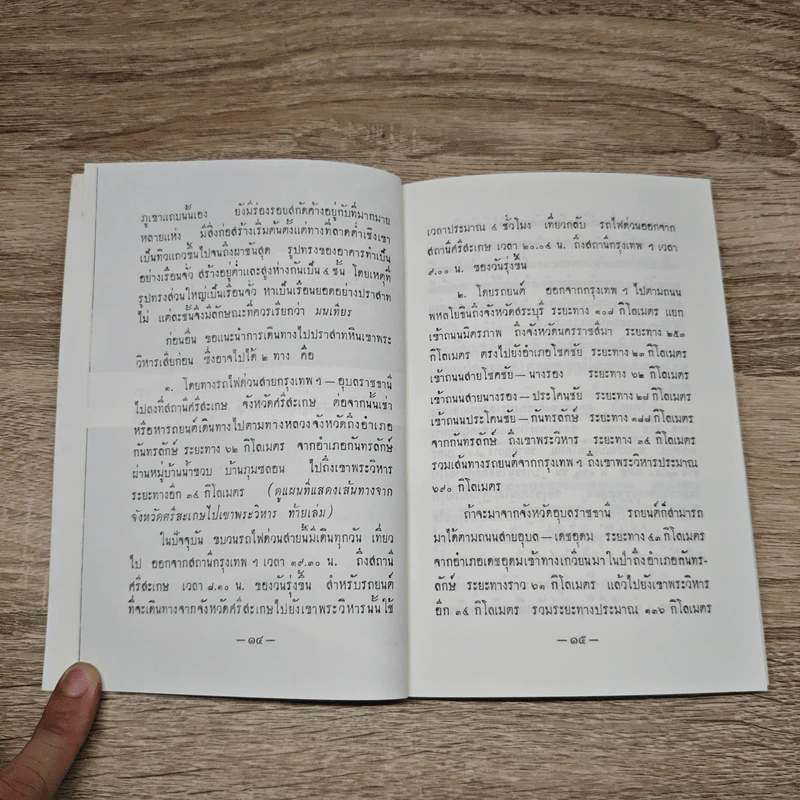 ภูเขาแถบนั้นเอง ยังมีร่องรอยสกัดค้างอยู่กับที่มากมาย
หลายแห่ง มีสิ่งก่อสร้างเริ่มต้นตั้งแต่ทางที่ลาดต่ำเชิงเขา
เป็นทิวแถวขึ้นไปจนถึงผาชันสุด รูปทรงของอาคารทำเป็น
อย่างเรือนจั่ว สร้างอยู่ต่ำและสูงห่างกันเป็น ๔ ชั้น โดยเหตุที่
รูปทรงส่วนใหญ่เป็นเรือนจั่ว หาเป็นเรือนยอดอย่างปราสาท
ไม่ แต่ละชั้นจึงมีลักษณะที่ควรเรียกว่า มนเทียร
ก่อนอื่น ขอแนะนำการเดินทางไปปราสาทหินเขาพระ
วิหารเสียก่อน ซึ่งอาจไปได้ ๒ ทาง คือ
๑. โดยทางรถไฟด่วนสายกรุงเทพ ฯ — อุบลราชธานี
ไปลงที่สถานีศรีสะเกษ จังหวัดศรีสะเกษ ต่อจากนั้นเช่า
หรือหารถยนต์เดินทางไปตามทางหลวงจังหวัดถึงอำเภอ
กันทรลักษ์ ระยะทาง ๖๒ กิโลเมตร จากอำเภอกันทรลักษ์
ผ่านหมู่บ้านน้ำขวบ บ้านภุมซลอน ไปถึงเขาพระวิหาร
ระยะทางอีก ๓๔ กิโลเมตร (ดูแผนที่แสดงเส้นทางจาก
จังหวัดศรีสะเกษไปเขาพระวิหาร ท้ายเล่ม)
ในปัจจุบัน ขบวนรถไฟด่วนสายนี้มีเดินทุกวัน เที่ยว
ไป ออกจากสถานีกรุงเทพ ฯ เวลา ๑๙.๓๐ น. ถึงสถานี
ศรีสะเกษ เวลา ๘.๑๐ น. ของวันรุ่งขึ้น สำหรับรถยนต์
ที่จะเดินทางจากจังหวัดศรีสะเกษไปยังเขาพระวิหารนั้นใช้
— ๑๔ —
เวลาประมาณ ๔ ชั่วโมง เที่ยวกลับ รถไฟด่วนออกจาก
สถานีศรีสะเกษ เวลา ๒๐.๐๔ น. ถึงสถานีกรุงเทพ ฯ เวลา
๙.๐๐ น. ของวันรุ่งขึ้น
๒. โดยรถยนต์ ออกจากกรุงเทพ ฯ ไปตามถนน
พหลโยธินถึงจังหวัดสระบุรี ระยะทาง ๑๐๘ กิโลเมตร แยก
เข้าถนนมิตรภาพ ถึงจังหวัดนครราชสีมา ระยะทาง ๒๕๓
กิโลเมตร ตรงไปยังอำเภอโชคชัย ระยะทาง ๒๓ กิโลเมตร
เข้าถนนสายโชคชัย — นางรอง ระยะทาง ๖๒ กิโลเมตร
เข้าถนนสายนางรอง — ประโคนชัย ระยะทาง ๒๘ กิโลเมตร
เข้าถนนประโคนชัย — กันทรลักษ์ ระยะทาง ๑๘๘ กิโลเมตร
จากกันทรลักษ์ ถึงเขาพระวิหาร ระยะทาง ๓๔ กิโลเมตร
รวมเส้นทางรถยนต์จากกรุงเทพ ฯ ถึงเขาพระวิหารประมาณ
๖๙๐ กิโลเมตร
ถ้าจะมาจากจังหวัดอุบลราชธานี รถยนต์ก็สามารถ
มาได้ตามถนนสายอุบล — เดชอุดม ระยะทาง ๔๓ กิโลเมตร
จากอำเภอเดชอุดมเข้าทางเกวียนมาในป่าถึงอำเภอกันทร-
ลักษ์ ระยะทางราว ๖๑ กิโลเมตร แล้วไปยังเขาพระวิหาร
อีก ๓๔ กิโลเมตร รวมระยะทางประมาณ ๑๓๖ กิโลเมตร
— ๑๕ —